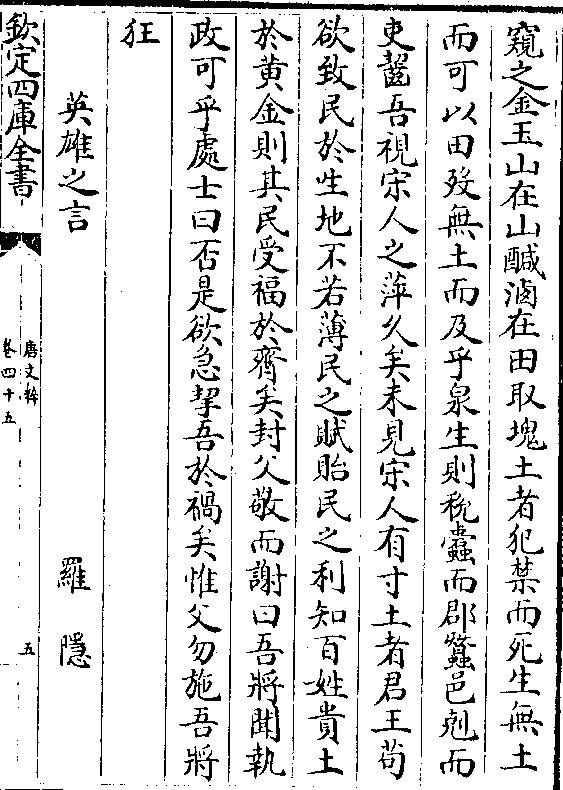 窺之金玉山在山鹹滷在田取塊土者犯禁而死生無土
而可以田歿無土而及乎泉生則稅蠹而郡蠶邑剋而
吏齧吾視宋人之萍久矣未見宋人有寸土者君王苟
欲致民於生地不若薄民之賦貽民之利知百姓貴土
於黄金則其民受福於齊矣封父敬而謝曰吾將聞執
政可乎處士曰否是欲急挐吾於禍矣惟父勿施吾將
狂
英雄之言 羅隱
欽定四庫全書
唐文粹
卷四十五
五